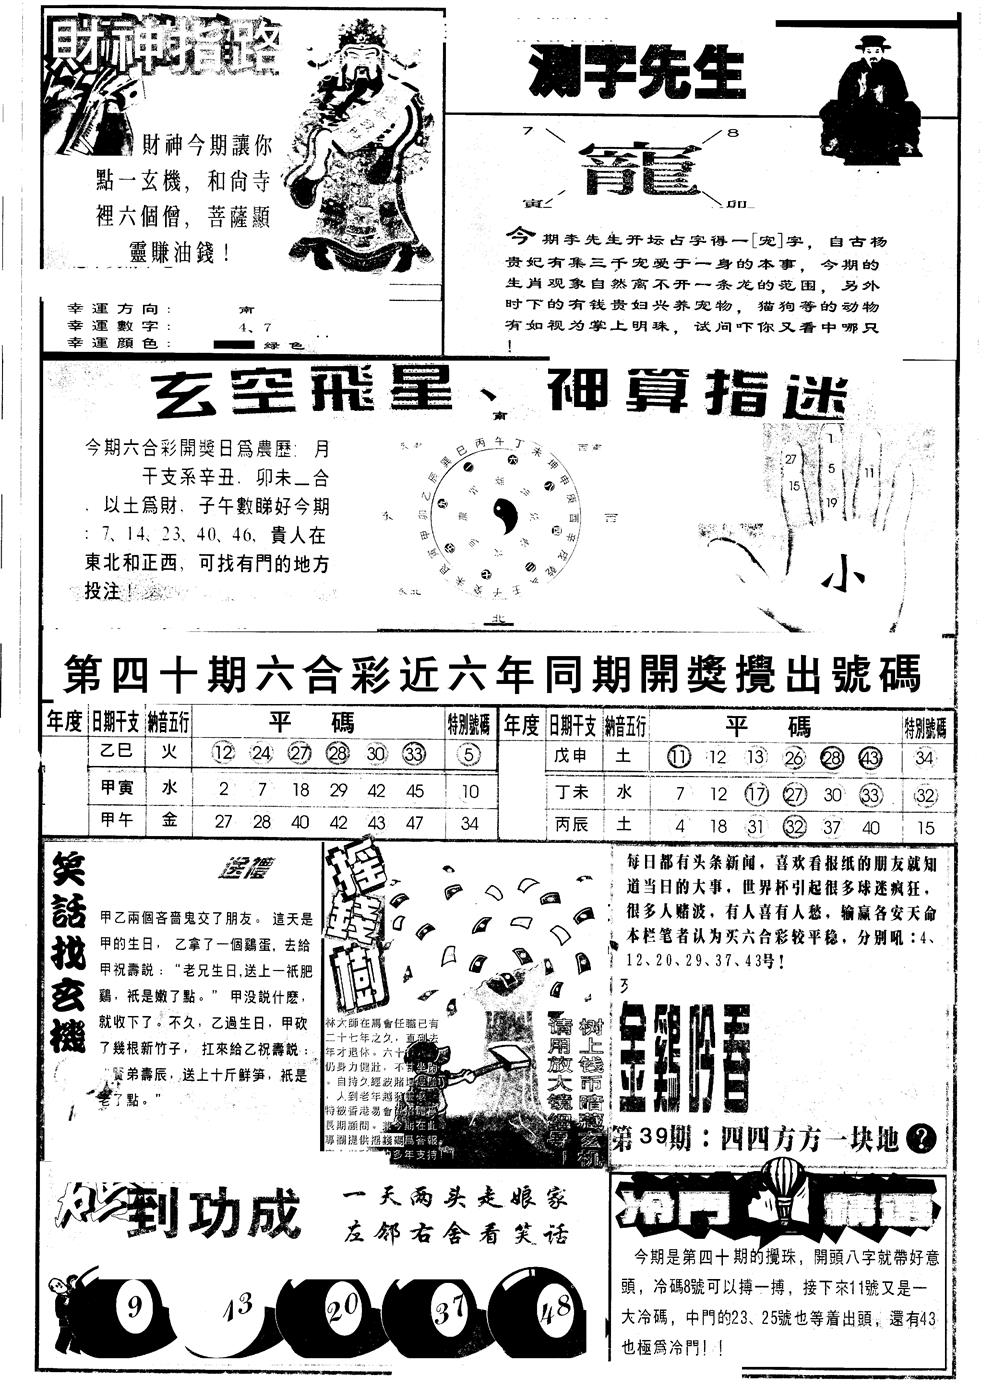 財神指路
財神今期讓你
點一玄機，和尙寺
裡六個僧，菩薩顯
靈賺油錢！
幸運方向： 南
幸運數字： 4、7
幸運顔色： 绿色
测字先生
7 8
寵
寅 卯
今期李先生开坛占字得一[宠]字，自古杨
贵妃有集三千宠爱于一身的本事，今期的
生肖观象自然离不开一条龙的范围，另外
时下的有钱贵妇兴养宠物，猫狗等的动物
有如视为掌上明珠，试问吓你又看中哪只
！
玄空飛星、神算指迷
今期六合彩開獎日爲農歷 月
干支系辛丑．卯未二合
．以土爲財．子午數睇好今期
：7、14、23、40、46、貴人在
東北和正西，可找有門的地方
投注！
南
北
27 1
15 5 11
19
小
第四十期六合彩近六年同期開獎攪出號碼
年度 日期干支 納音五行 平 碼 特別號碼 年度 日期干支 納音五行 平 碼 特別號碼
乙巳 火 12 24 27 28 30 33 5 戊申 土 11 12 13 26 28 43 34
甲寅 水 2 7 18 29 42 45 10 丁未 水 7 12 17 27 30 33 32
甲午 金 27 28 40 42 43 47 34 丙辰 土 4 18 31 32 37 40 15
笑話找玄機
送禮
甲乙兩個吝嗇鬼交了朋友。這天是
甲的生日，乙拿了一個鷄蛋，去給
甲祝壽説：“老兄生日,送上一衹肥
鷄，衹是嫩了點。”甲没説什麽，
就收下了。不久，乙過生日，甲砍
了幾根新竹子，扛來給乙祝壽説：
弟壽辰，送上十斤鮮笋，衹是
老了點。”
摇錢樹
林大師在馬會任職已有
二十七年之久，直到去
年才退休。六十
仍身力健壯，不
．自持久經政賭
．人到老年越
特被香港易會
長期顧問。 今期在此
專欄提供摇錢 爲答報
多年支持
树上钱币暗藏玄机
请用放大镜细看
每日都有头条新闻，喜欢看报纸的朋友就知
道当日的大事，世界杯引起很多球迷疯狂，
很多人赌波，有人喜有人愁，输赢各安天命
本栏笔者认为买六合彩较平稳，分别吼：4、
12、20、29、37、43号！
金鷄吟春
第39期：四四方方一块地？
到功成
一天两头走娘家
左邻右舍看笑话
9 13 20 37 48
冷門精選
今期是第四十期的攪珠，開頭八字就帶好意
頭，冷碼8號可以搏一搏，接下來11號又是一
大冷碼，中門的23、25號也等着出頭，還有43
也極爲冷門！！